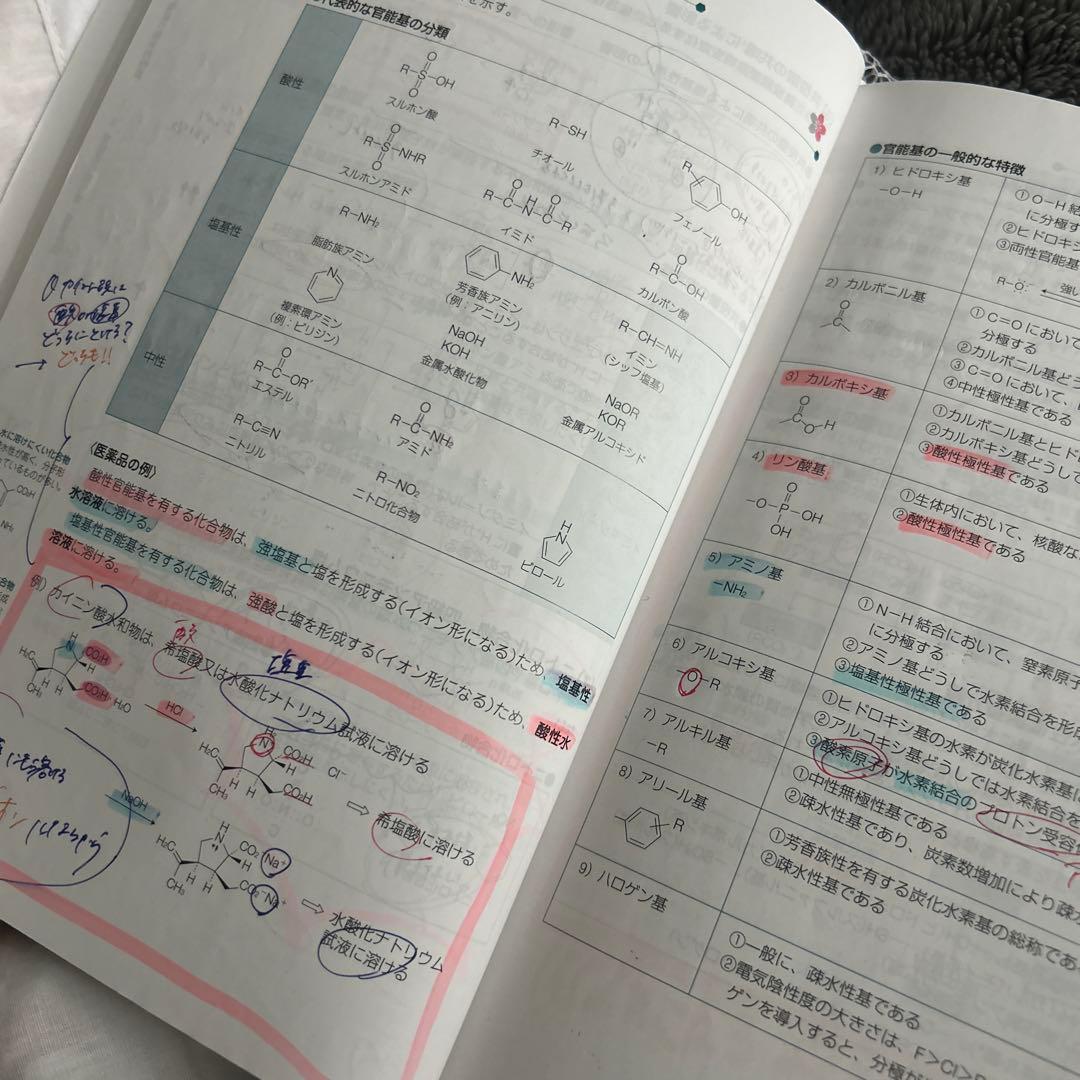 を示す。
代表的な官能基の分類
酸性
R-S-OH
O
O
スルホン酸
R-SH
チオール
R
OH
フェノール
R-S-NHR
O
O
スルホンアミド
O H O
R-C-N-C-R
イミド
O
R-C-OH
カルボン酸
塩基性
R-NH₂
脂肪族アミン
NH₂
芳香族アミン
(例:アニリン)
R-CH=NH
イミン
(シッフ塩基)
N
複素環アミン
(例:ピリジン)
NaOH
KOH
金属水酸化物
NaOR
KOR
金属アルコキシド
中性
O
R-C-OR'
エステル
O
R-C-NH₂
アミド
R-C≡N
ニトリル
R-NO₂
ニトロ化合物
H
N
ピロール
どっちも!!
水に溶けにくい化合物
CO₂H
NH₂
〈医薬品の例〉
酸性官能基を有する化合物は、強塩基と塩を形成する(イオン形になる)ため、塩基性
水溶液に溶ける。
塩基性官能基を有する化合物は、強酸と塩を形成する(イオン形になる)ため、酸性水
溶液に溶ける。
例) カイニン酸水和物は、希塩酸又は水酸化ナトリウム試液に溶ける
酸
塩基
H₃C
CH₃
H
N
CO₂H
CO₂H
H₂O
HCl
H₃C
CH₃
N
CO₂H
CO₂H
Cl⁻
⇨ 希塩酸に溶ける
NaOH
H₃C
CH₃
H
N
CO₂⁻Na⁺
CO₂⁻Na⁺
⇨ 水酸化ナトリウム
試液に溶ける
●官能基の一般的な特徴
1) ヒドロキシ基
-O-H
①O-H 結
に分極す
②ヒドロキシ
③両性官能基
R-O: 強い
2) カルボニル基
O
C
①C=O において
分極する
②カルボニル基どう
③C=O において、
④中性極性基である
3) カルボキシ基
O
C O H
①カルボニル基とヒド
②カルボキシ基どうして
③酸性極性基である
4) リン酸基
O
-O-P-OH
OH
①生体内において、核酸な
②酸性極性基である
5) アミノ基
-NH₂
①N-H 結合において、窒素原子
に分極する
②アミノ基どうしで水素結合を形
③塩基性極性基である
6) アルコキシ基
O-R
①ヒドロキシ基の水素が炭化水素基に
②アルコキシ基どうしでは水素結合を
③酸素原子が水素結合のプロトン受容
7) アルキル基
-R
①中性無極性基である
②疎水性基であり、炭素数増加により疎水
8) アリール基
R
①芳香族性を有する炭化水素基の総称であ
②疎水性基である
9) ハロゲン基
①一般に、疎水性基である
②電気陰性度の大きさは、F>Cl>
ゲンを導入すると、分極が